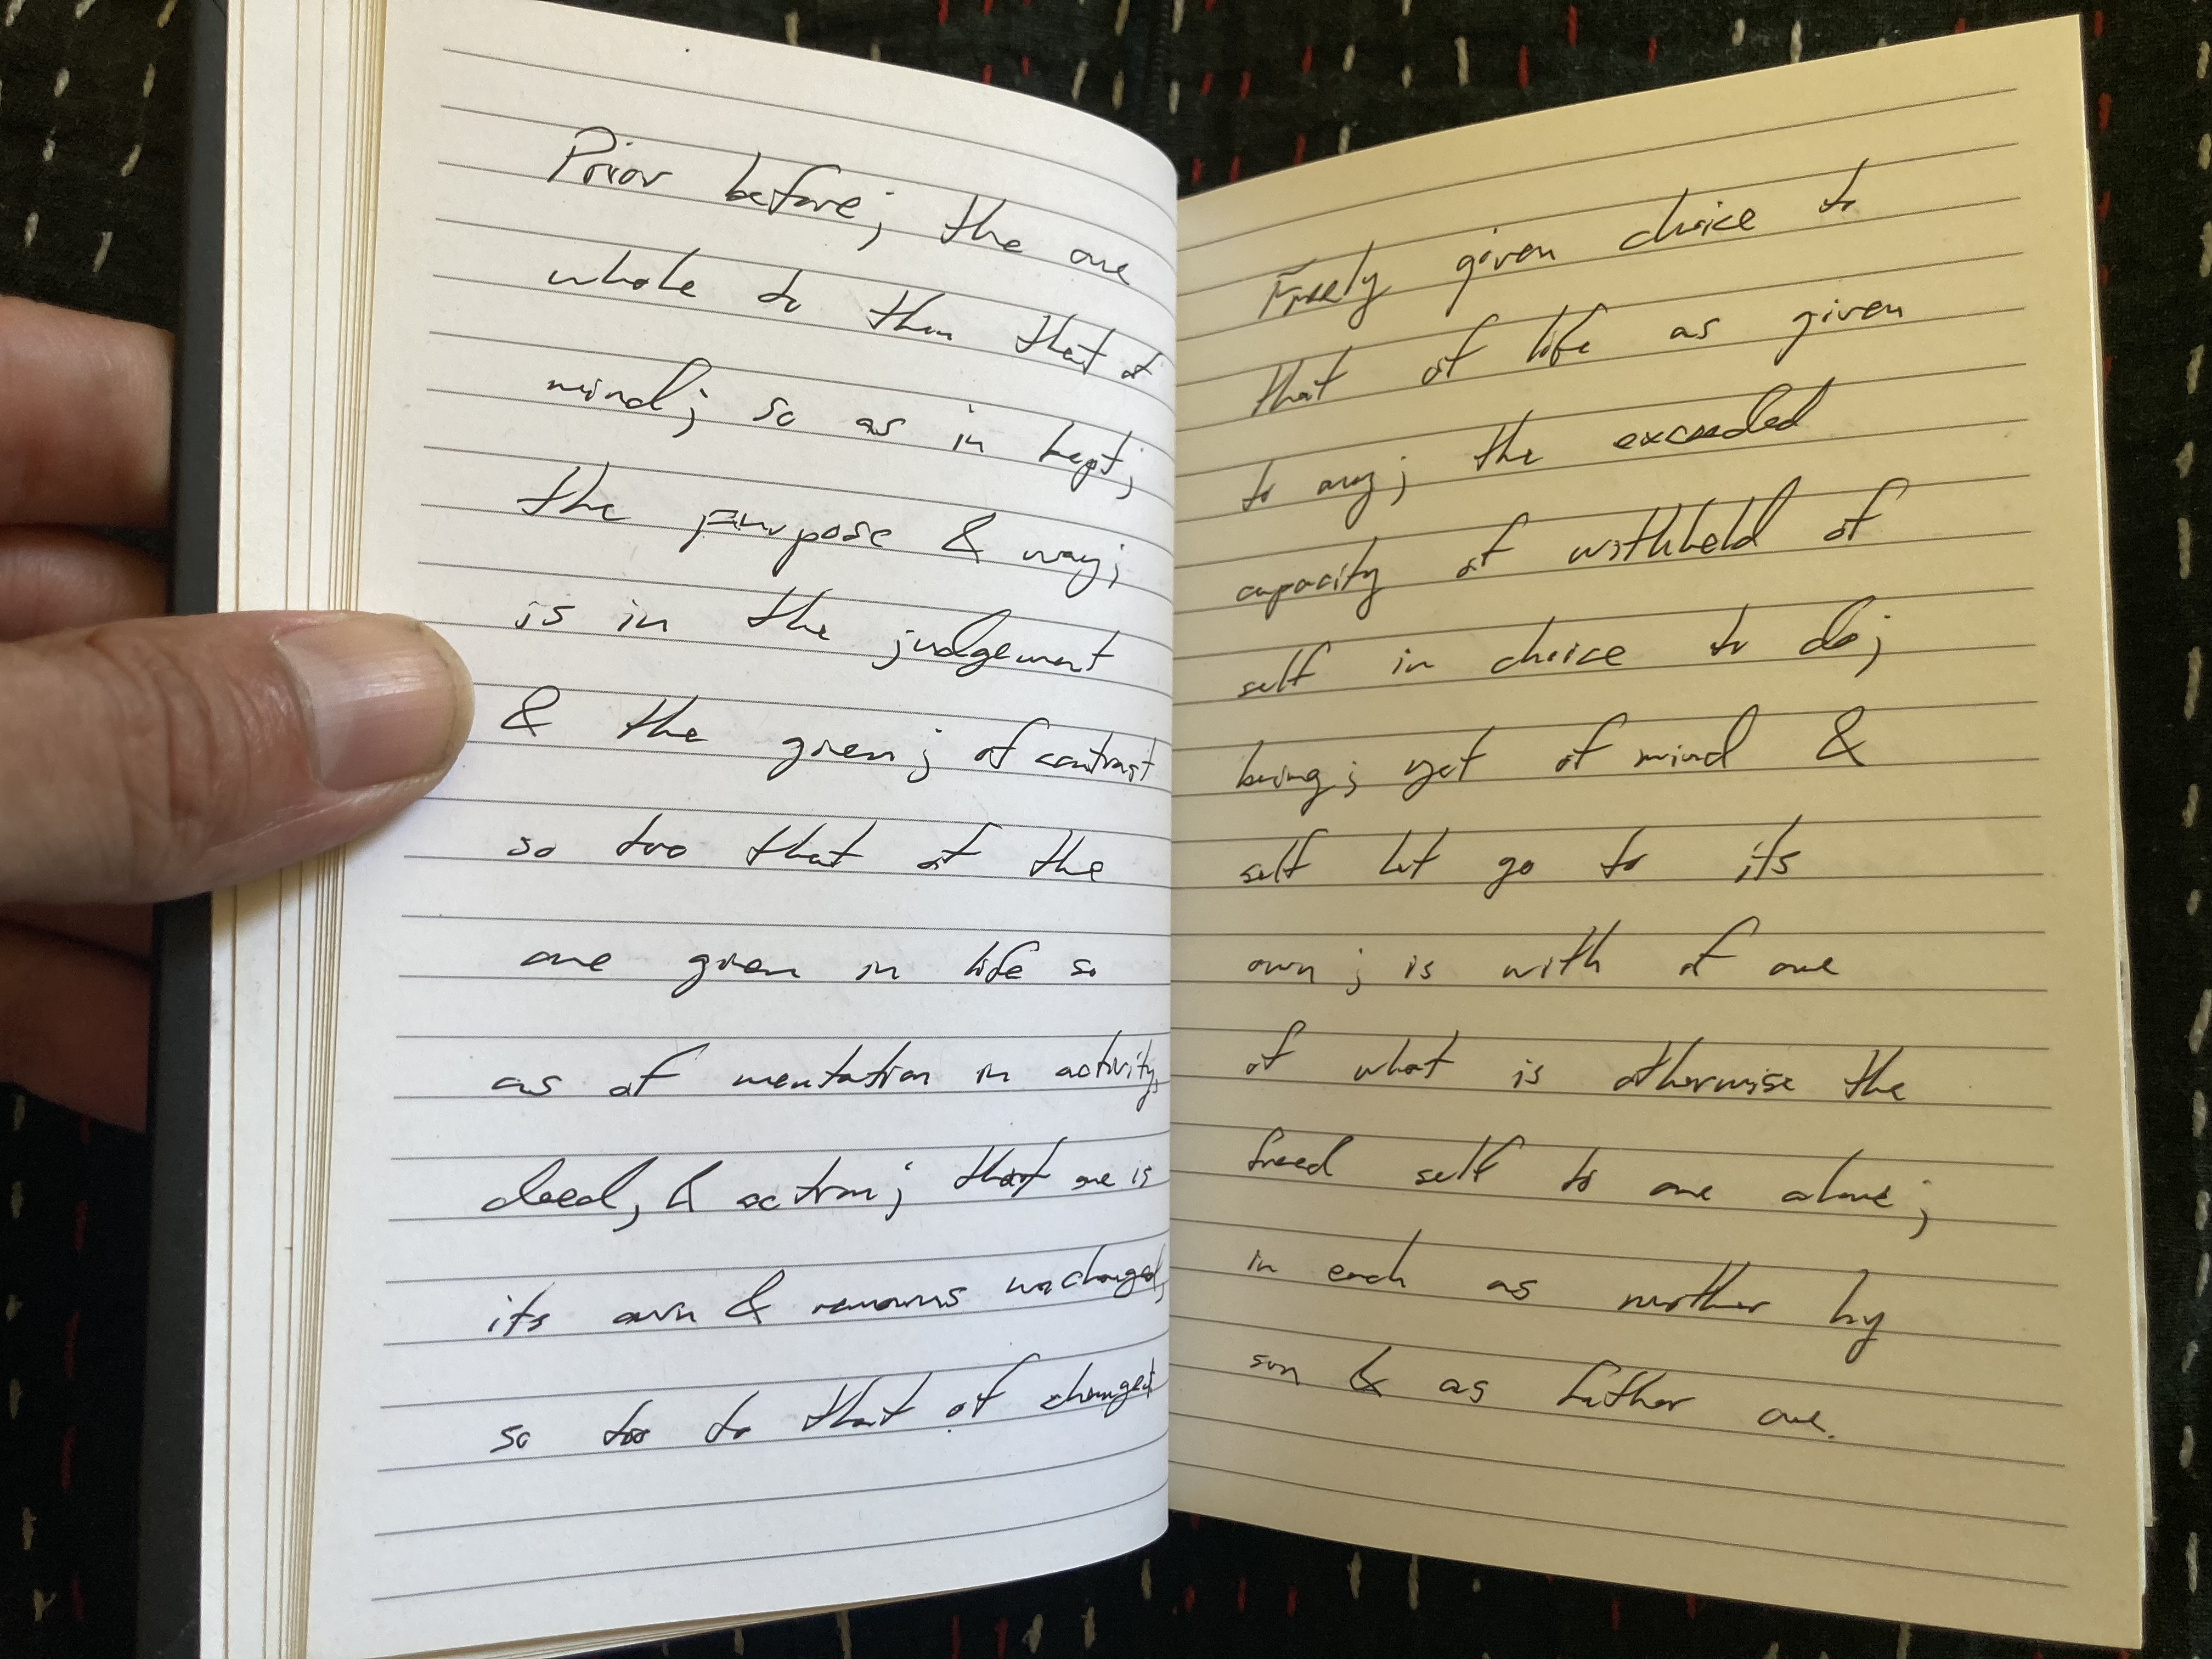 Prior before; the one
whole to then that of
mind; so as in kept;
the purpose & way;
is in the judgement
& the given; of contrast
so too that of the
one given in life so
as of mentation in activity,
deed, & action; that one is
its own & remains unchanged,
so too to that of changed
Freely given choice to
that of life as given
to any; the exceeded
capacity of withheld of
self in choice to do;
being; yet of mind &
self let go to its
own; is with of one
of what is otherwise the
freed self to one alone;
in each as mother by
son & as father one.